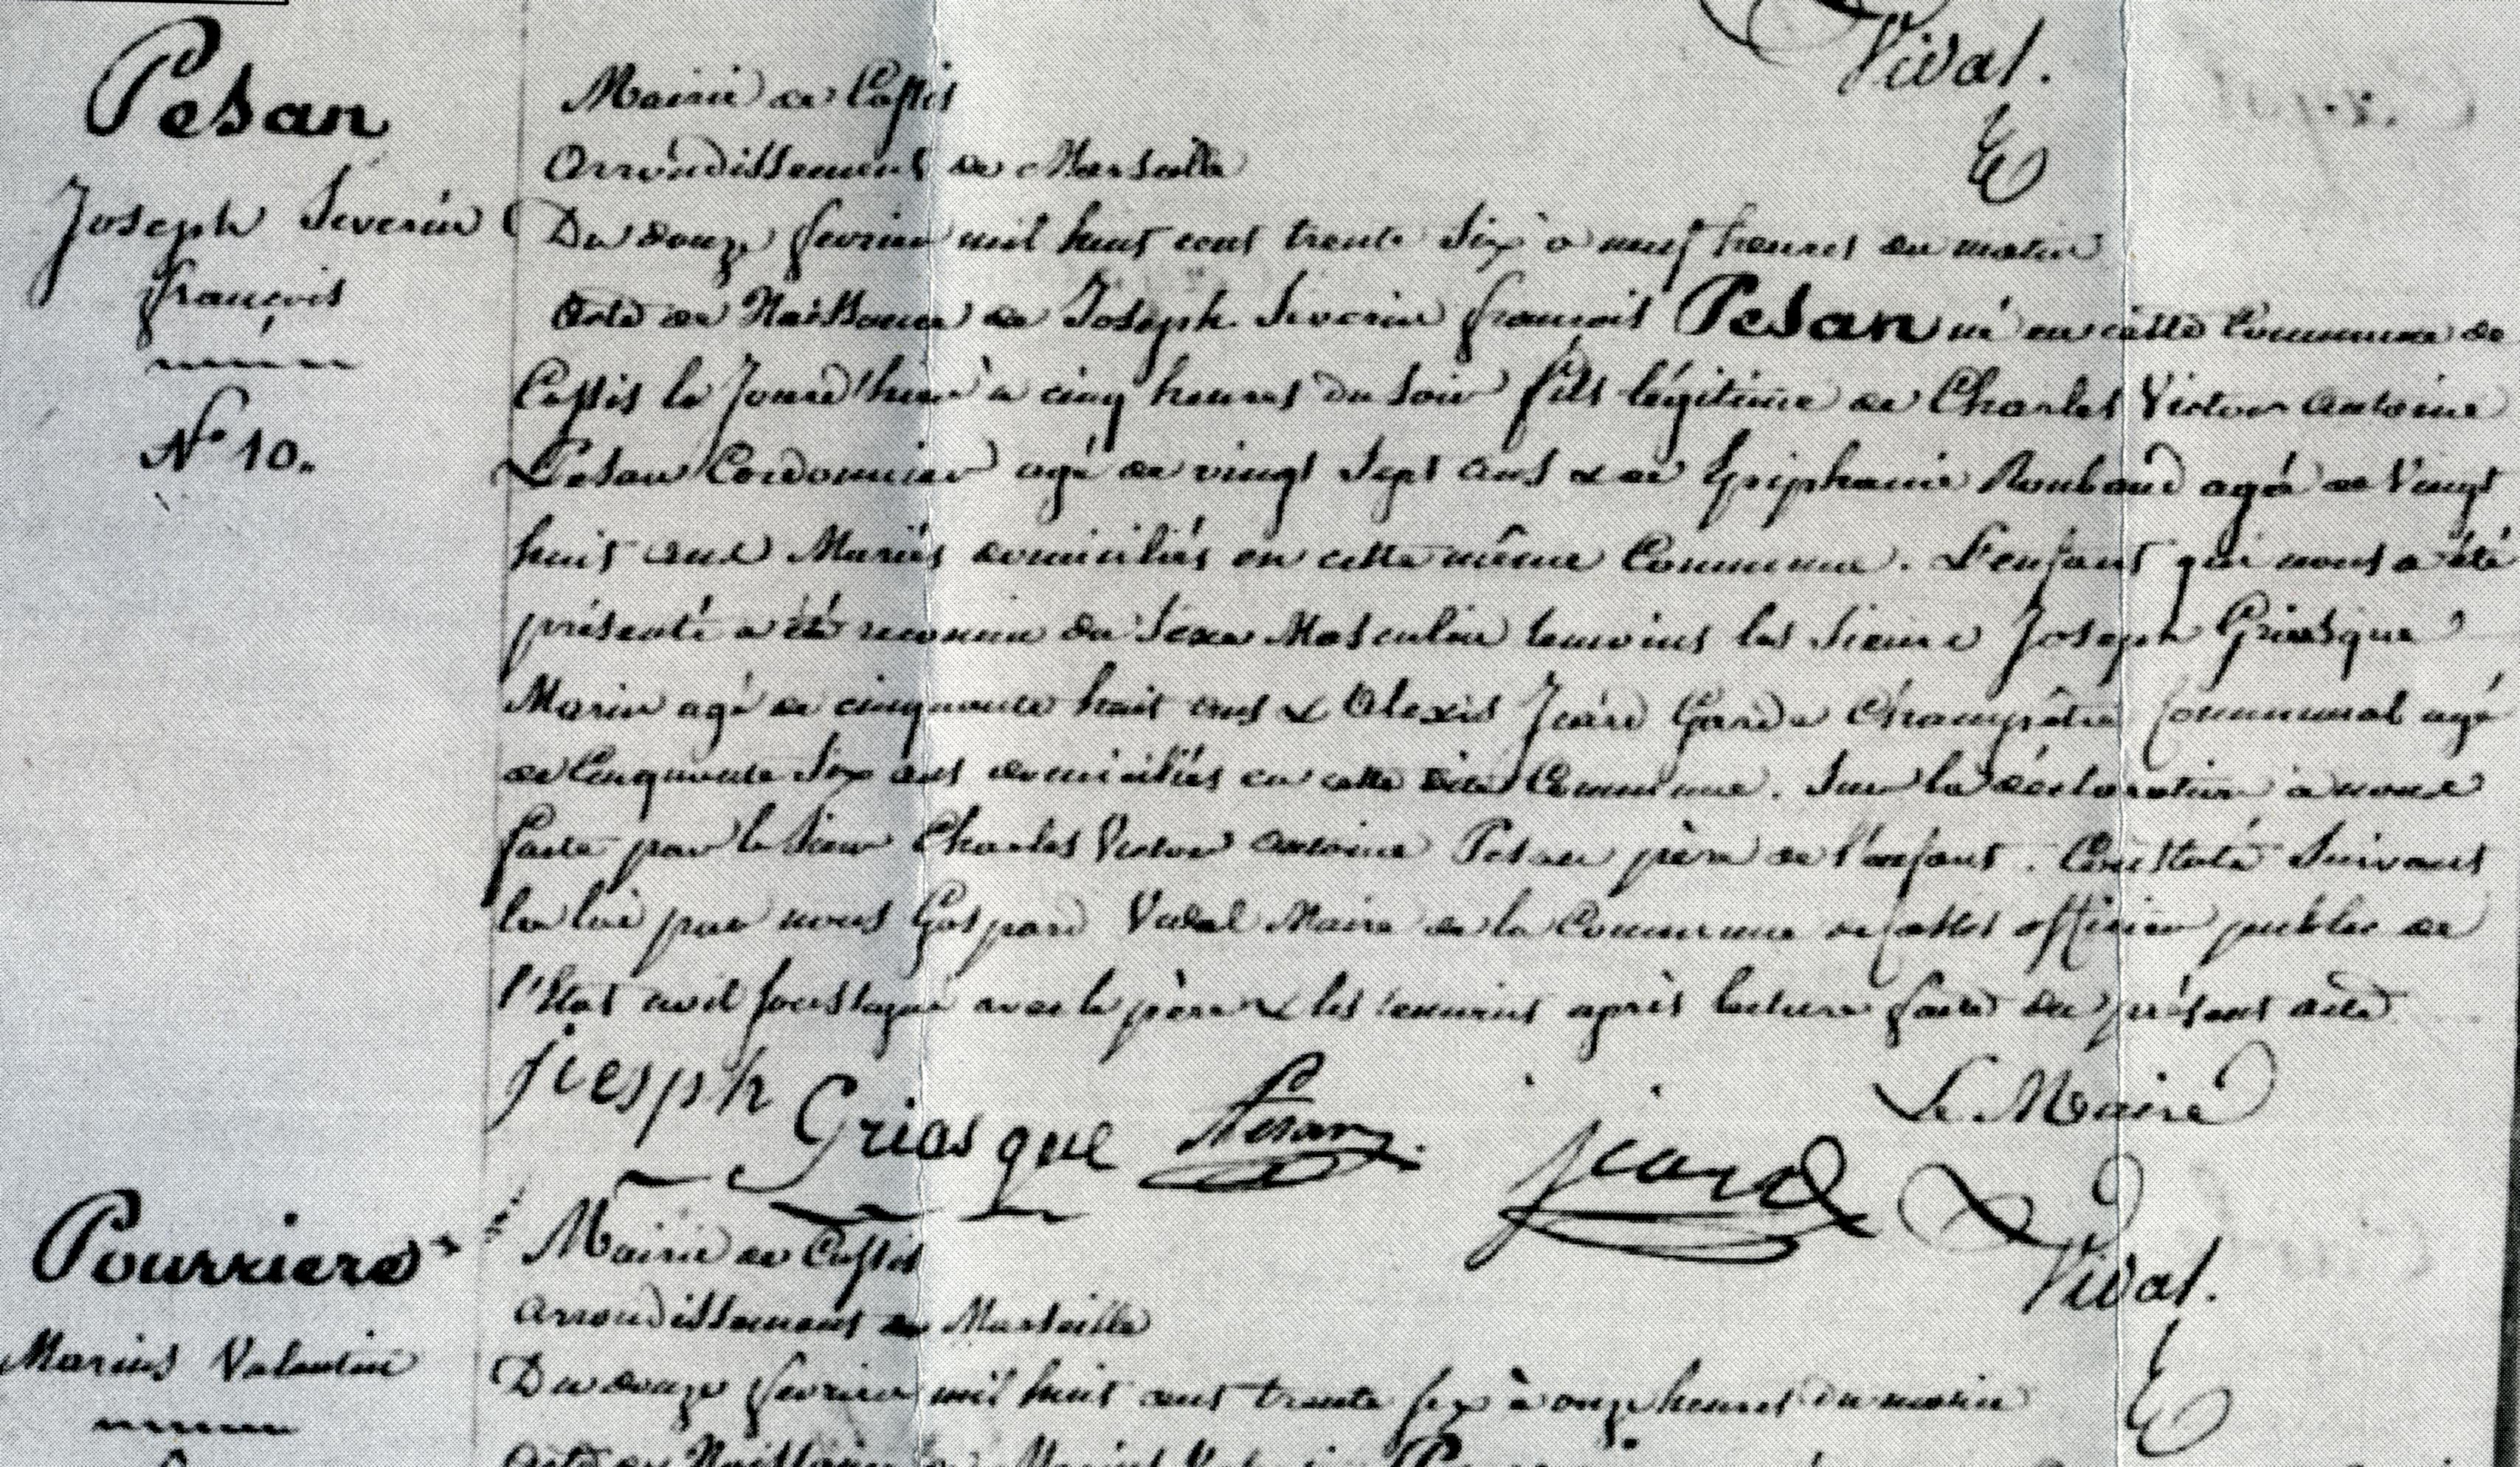 Vidal.
Pesan
Joseph Severin
françois
N° 10.
Mairie de Cassis
Arrondissement de Marseille
Du douze fevrier mil huit cent trente six à neuf heures du matin
Acte de Naissance de Joseph Severin françois Pesan né en cette Commune de
Cassis le Jourd'hier à cinq heures du soir fils légitime de Charles Victor antoine
Pesan Cordonnier agé de vingt sept ans & de Epiphanie Roubaud agée de Vingt
huit ans Mariés domiciliés en cette même Commune. L'enfant qui nous a été
présenté a été reconnu du Sexe Masculin temoins les Sieurs Joseph Griasque
Marin agé de cinquante huit ans & Alexis Jcard Garde Champêtre Communal agé
de Cinquante Six ans domiciliés en cette dite Commune. Sur la déclaration à nous
faite par le Sieur Charles Victor antoine Pesan père de l'enfant. Constaté Suivant
la loi par nous Gaspard Vidal Maire de la Commune de Cassis officier public de
l'Etat civil soussigné avec le père & les temoins après lecture faite du présent acte
jiesph Griasque Pesan jcard Le Maire
Vidal.
Pourriere
Marius Valentin
Mairie de Cassis
arrondissement de Marseille
Du douze fevrier mil huit cent trente six à onze heures du matin
Acte de Naissance de Marius Valentin